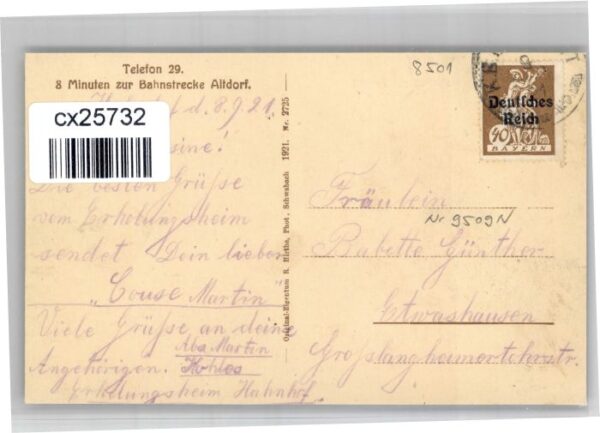 Telefon 29.
8 Minuten zur Bahnstrecke Altdorf.
d. 8.9.21.
cx25732
Die besten Grüße
vom Erholungsheim
sendet Dein lieber
"Couse Martin"
Viele Grüße an deine
Angehörigen.
Abs. Martin
Kohles
Erholungsheim Hahnhof
Original-Eigentum R. Hirthe, Phot., Schwabach 1921. Nr. 2725
8501
Deutsches
Reich
40
BAYERN
Fräulein
Nr 9509N
Babette Günther
Etwashausen
Großlangheimerstr.